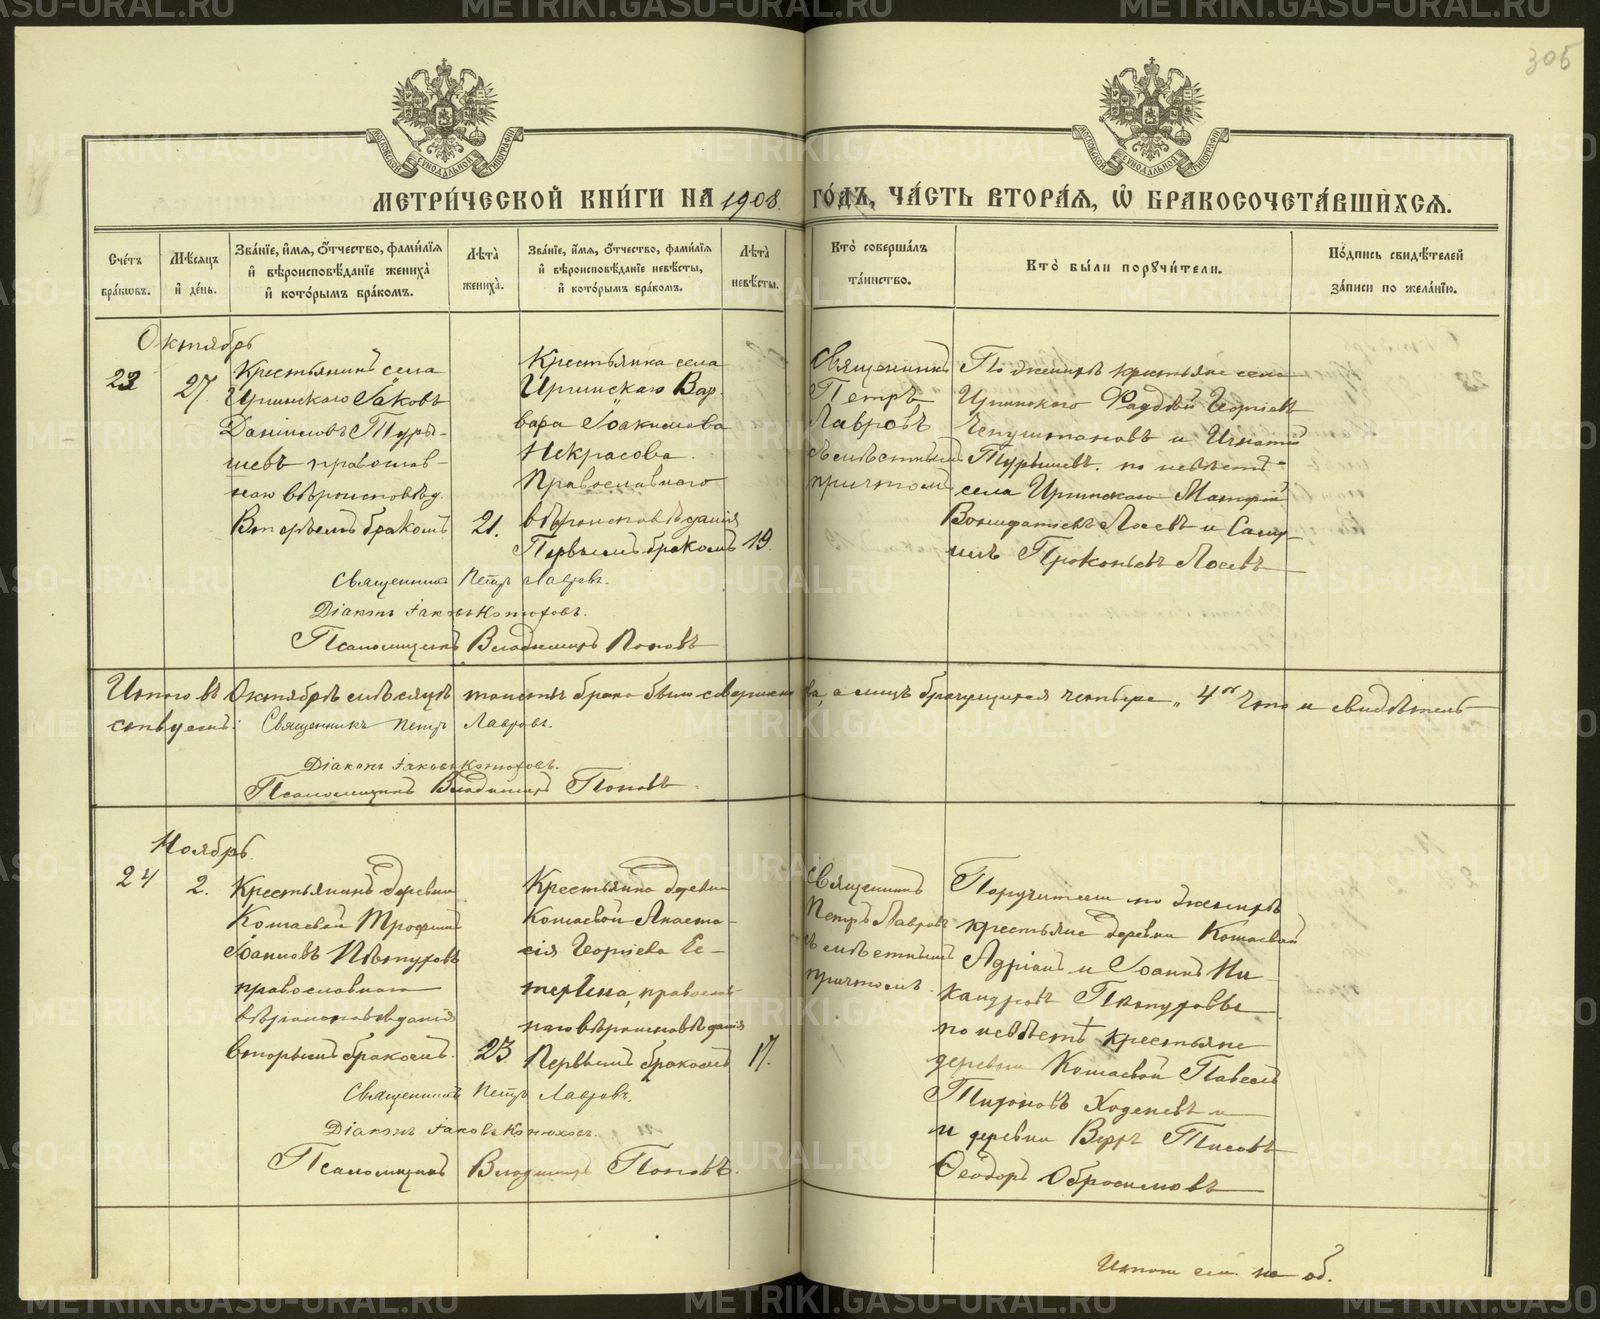 305
МОСКОВСКОЙ СѴНОДАЛЬНОЙ ТИПОГРАФІИ
МОСКОВСКОЙ СѴНОДАЛЬНОЙ ТИПОГРАФІИ
МЕТРИ́ЧЕСКОЙ КНИ́ГИ НА 1908 ГО́ДЪ, ЧА́СТЬ ВТОРА́Я, Ѡ БРАКОСОЧЕТА́ВШИХСЯ.
Сче́тъ бра́кѡвъ.
Мѣ́сяцъ и де́нь.
Зва́нїе, и́мя, ѻ́тчество, фами́лїя
и вѣроисповѣ́данїе жениха̀
и кото́рымъ бра́комъ.
Лѣта̀ жениха̀.
Зва́нїе, и́мя, ѻ́тчество, фами́лїя
и вѣроисповѣ́данїе невѣ́сты,
и кото́рымъ бра́комъ.
Лѣта̀ невѣ́сты.
Кто̀ соверша́лъ та́инство.
Кто̀ бы́ли порꙋчи́тели.
По́дпись свидѣ́телей за́писи по жела́нїю.
Октябрь
23
27.
Крестьянинъ села
Иргинскаго Іаковъ
Даніиловъ Туры-
шевъ православ-
наго вѣроисповѣд.
Вторымъ бракомъ
21.
Крестьянка села
Иргинскаго Вар-
вара Іоакимова
Некрасова.
Православнаго
вѣроисповѣданія
Первымъ бракомъ
19.
Священникъ
Петръ
Лавровъ
съ мѣстнымъ
причтомъ
По женихѣ крестьяне села
Иргинскаго Фаддей Георгіевъ
Чепуштановъ и Игнатій
Турышевъ. по невѣстѣ
села Иргинскаго
Вонифатіевъ Лосевъ и
Прокопьевъ Лосевъ
Священникъ Петръ Лавровъ.
Діаконъ Іаковъ Конюховъ.
Псаломщикъ Владимиръ Поповъ
Итого въ Октябрѣ мѣсяцѣ таинствъ брака было совершено два, а лицъ брачущихся четыре „4“ Что и свидѣтель-
ствуемъ: Священникъ Петръ Лавровъ.
Діаконъ Іаковъ Конюховъ.
Псаломщикъ Владимиръ Поповъ.
Ноябрь.
24
2.
Крестьянинъ деревни
Кошаевой Трофимъ
Іоанновъ Пѣтуховъ
православнаго
вѣроисповѣданія
вторымъ бракомъ.
23.
Крестьянка деревни
Кошаевой Анаста-
сія Георгіева
православ-
наго вѣроисповѣданія
Первымъ бракомъ
17.
Священникъ
Петръ Лавровъ
съ мѣстнымъ
причтомъ.
Поручители по женихѣ
крестьяне деревни Кошаевой
Адріанъ и Іоаннъ Ни-
кандровы Пѣтуховы
по невѣстѣ крестьяне
деревни Кошаевой Павелъ
и деревни
Ѳеодоръ Обросимовъ
Священникъ Петръ Лавровъ.
Діаконъ Іаковъ Конюховъ.
Псаломщикъ Владимиръ Поповъ.
Итогъ см. на об.
METRIKI.GASO-URAL.RU